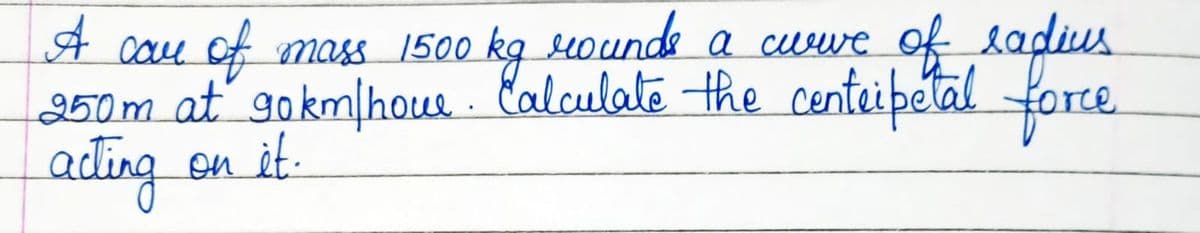 A car of mass 1500 kg rounds a curve of radius
250m at 90km/hour. Calculate the centripetal force
acting on it.